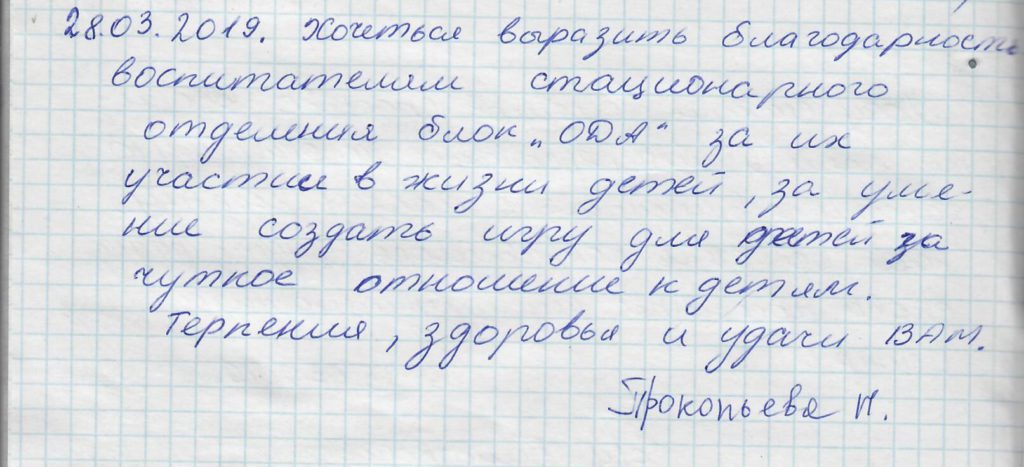 28.03.2019. Хочеться выразить благодарность
воспитателям стационарного
отделения блок „ОДА“ за их
участии в жизни детей, за уме-
ние создать игру для детей за
чуткое отношение к детям.
Терпения, здоровья и удачи ВАМ.
Прокопьева Н.